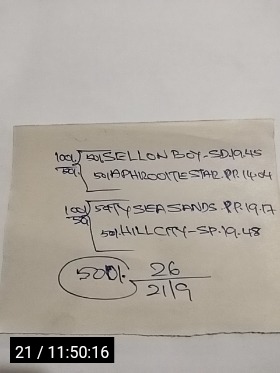 100/. 50/. SELLON BOY-SD.19.45
50/. 50/. APHRODITE STAR.PP.14.04
100/. 50/. TY SEA SANDS.PP.19.17
50/. 50/. HILL CITY-SP.19.48
500/. 26
21/9
21 / 11:50:16